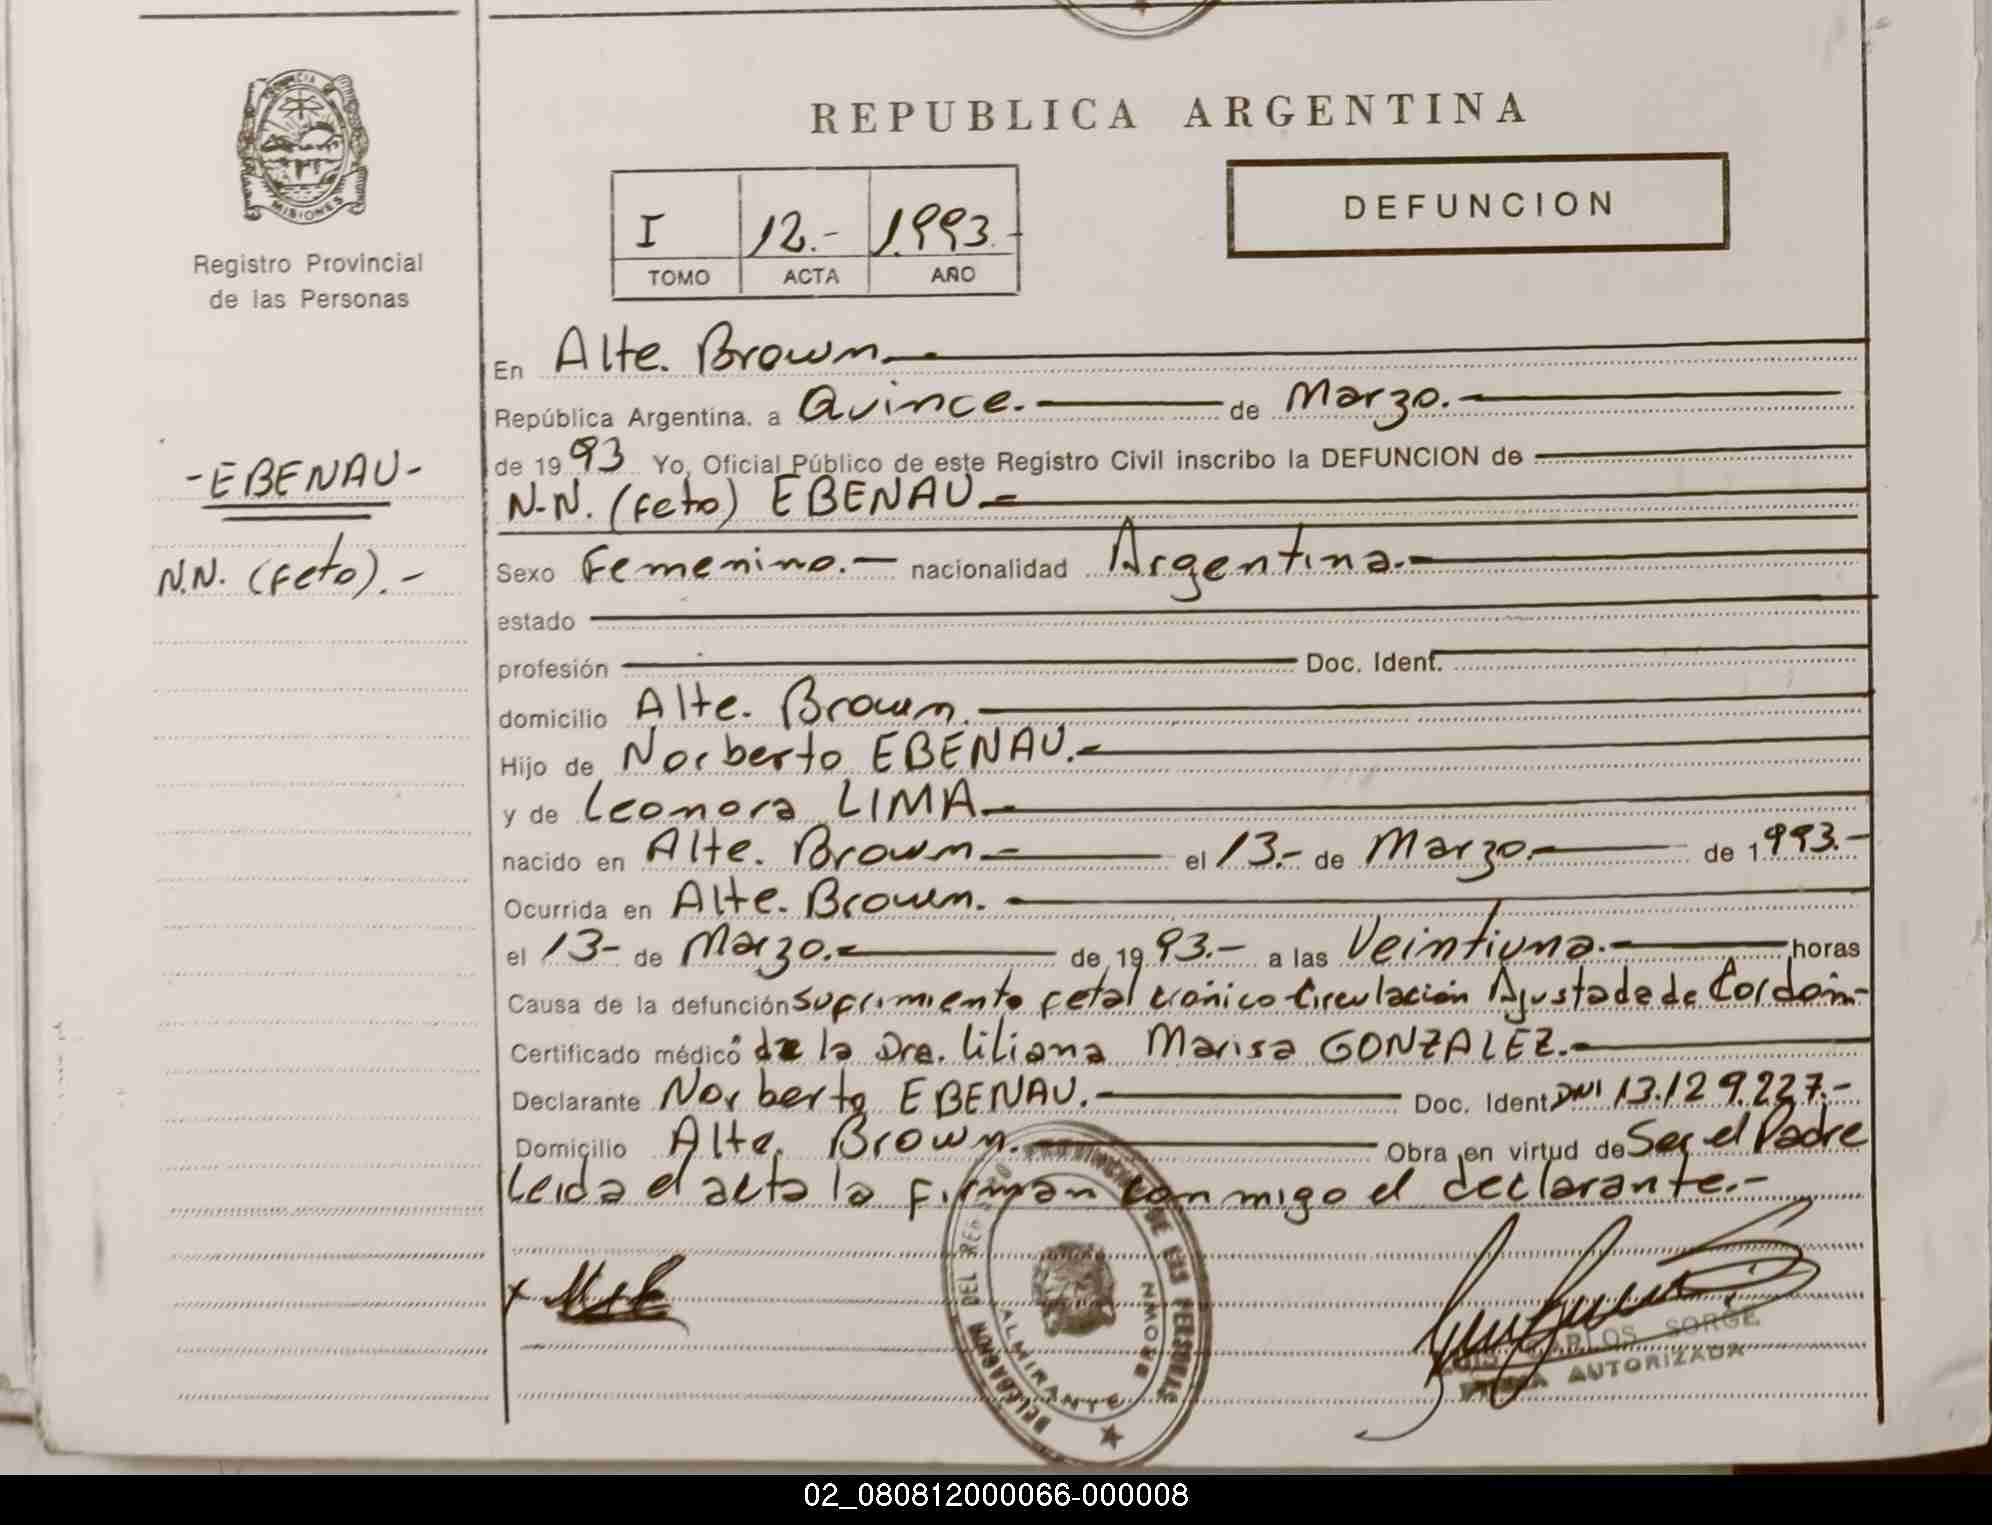 PROVINCIA DE
MISIONES
Registro Provincial
de las Personas
REPUBLICA ARGENTINA
DEFUNCION
I 12.- 1.993.-
TOMO ACTA AÑO
En Alte. Brown.
República Argentina. a Quince. de Marzo.
de 1993 Yo, Oficial Público de este Registro Civil inscribo la DEFUNCION de
-EBENAU-
N.N. (feto) EBENAU
N.N. (feto).-
Sexo Femenino.- nacionalidad Argentina.-
estado
profesión Doc. Ident.
domicilio Alte. Brown.
Hijo de Norberto EBENAU.-
y de Leonora LIMA
nacido en Alte. Brown el 13.- de Marzo.- de 1993.-
Ocurrida en Alte. Brown.
el 13- de Marzo.- de 1993.- a las Veintiuna.- horas
Causa de la defunción sufrimiento fetal crónico Circulación Ajustada de Cordón-
Certificado médico de la Dra. Liliana Marisa GONZALEZ.-
Declarante Norberto EBENAU.- Doc. Ident DNI 13.129.227.-
Domicilio Alte. Brown. Obra en virtud de Ser el Padre
Leida el acta la firman conmigo el declarante.-
DELEGACION DEL REG PROVINCIAL DE LAS PERSONAS
ALMIRANTE BROWN
CARLOS SORGE
AUTORIZADA
02_080812000066-000008